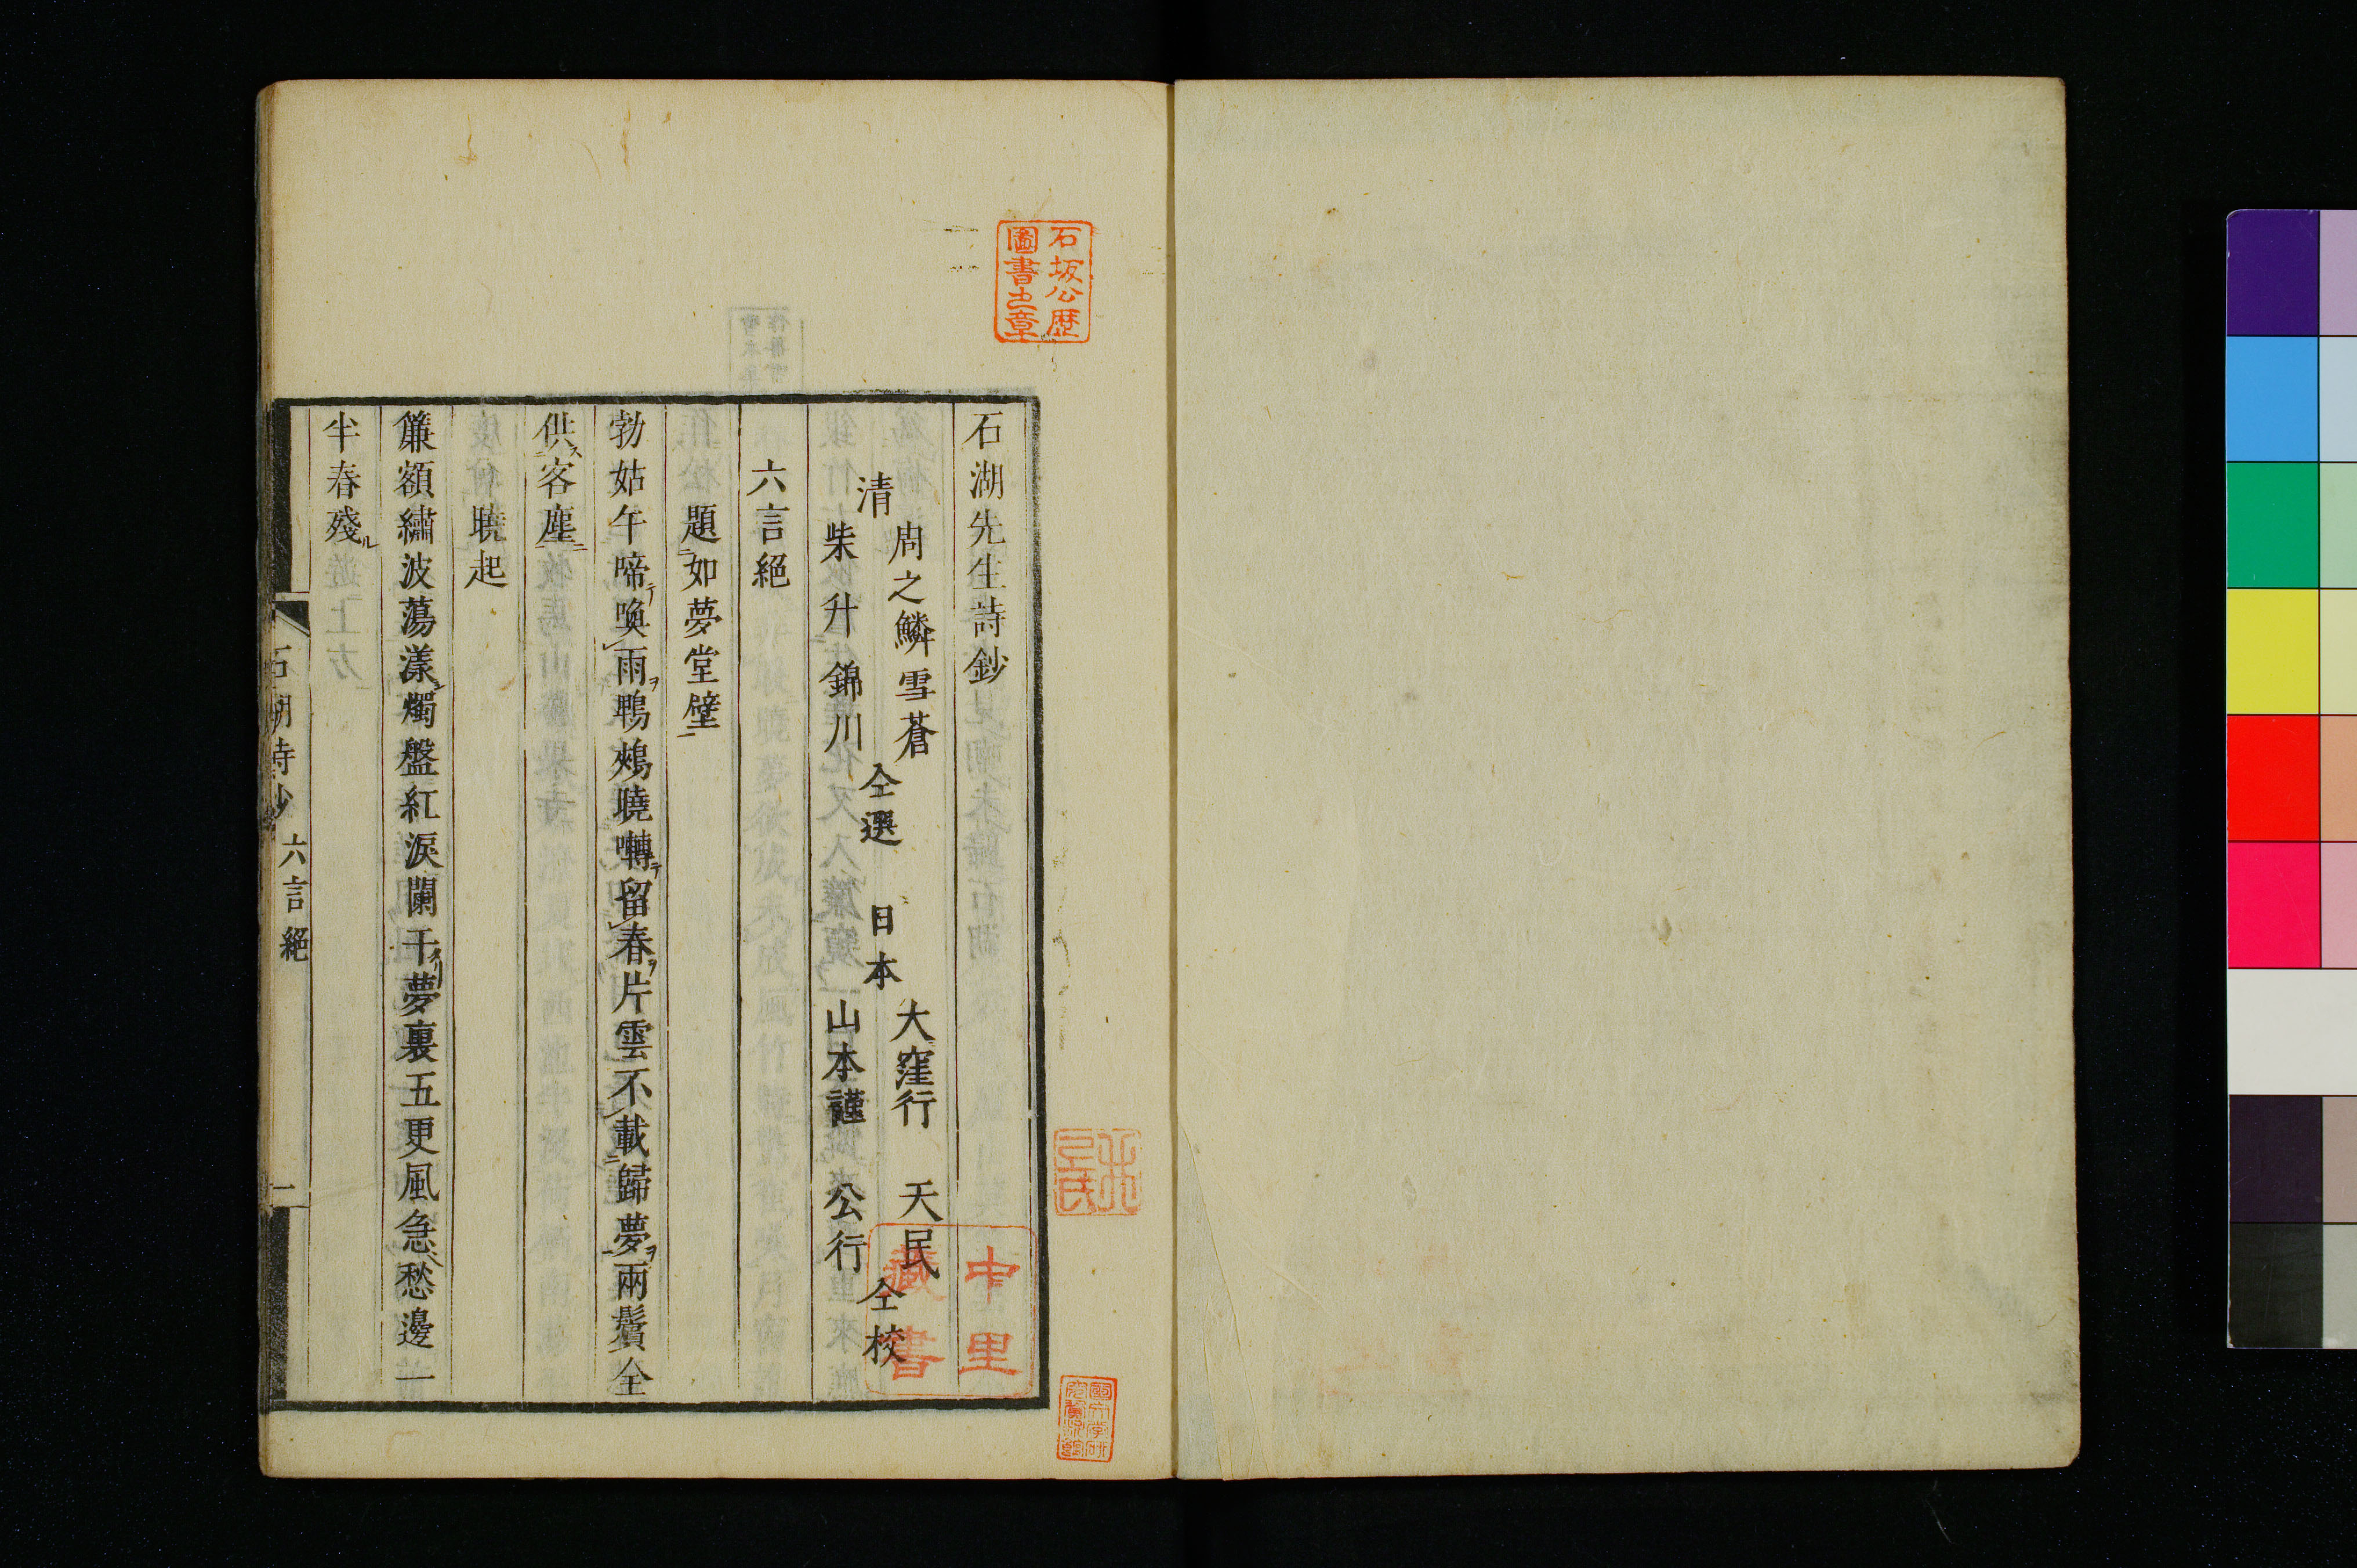 石湖先生詩鈔
清
周之鱗雪蒼
柴升錦川
仝選
日本
大窪行 天民
山本謹 公行
仝校
六言絕
題如夢堂壁
勃姑午啼喚雨鵯鵊曉囀留春片雲不載歸夢兩鬢全
供客塵
曉起
簾額繡波蕩漾燭盤紅淚闌干夢裏五更風急愁邊一
半春殘
石湖詩鈔
六言絕
一
石坂公歷
圖書之章
中里
藏書